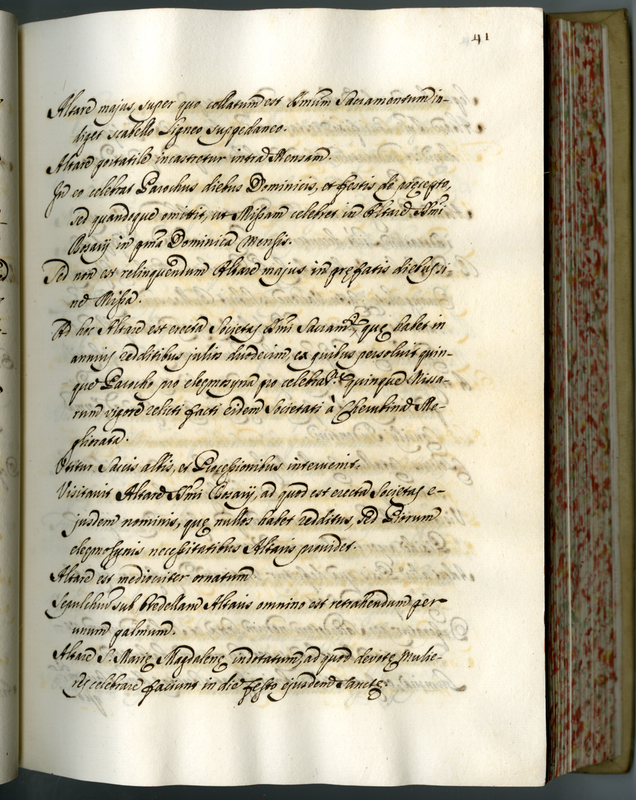 41
Altare majus, super quo collatum est SSmum Sacramentum in-
diget scabello ligneo suppedaneo.
Altare portatile incastretur intra Mensam.
In eo celebrat Parochus diebus Dominicis, et festis de precepto,
sed quandoque omittit, ut Missam celebret in Altare SSmi
Rosarij in prima Dominica mensis.
Sed non est relinquendum Altare majus in prefatis diebus si-
ne Missa.
Ad hoc Altare est erecta Societas SSmi Sacramti, que habet in
annuis redditibus julios duodecim, ex quibus persoluit quin-
que Parocho pro elegmosyna pro celebrate quinque Missa-
rum vigore relicti facti eidem Societati à Cherubina Me-
gliorata.
Utitur Saccis albis, et Processionibus intervenit.
Visitavit Altare SSmi Rosarij, ad quod est erecta Societas e-
jusdem nominis, que nullos habet redditus, sed Piorum
elegmosynis necessitatibus Altaris providet.
Altare est mediocriter ornatum
Sepulchrum sub bredellam Altaris omnino est retrahendum per
unum palmum.
Altare S. Marie Magdalene visitatum, ad quod devote mulie-
res celebrare faciunt in die festo ejusdem Sancte.